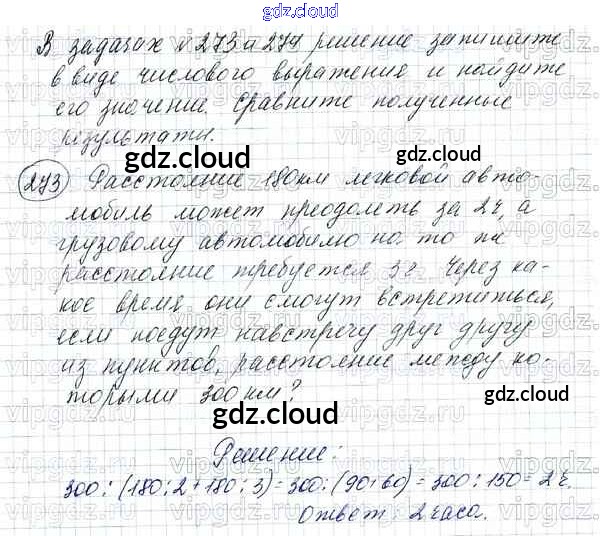 gdz.cloud
В задачах №273 и 274 решение запишите
в виде числового выражения и найдите
его значение. Сравните полученные
результаты.
gdz.cloud gdz.cloud
273 Расстояние 180км легковой авто-
мобиль может преодолеть за 2ч, а
грузовому автомобилю на то же
расстояние требуется 3ч. Через ка-
кое время они смогут встретиться,
если поедут навстречу друг другу
из пунктов, расстояние между ко-
торыми 300км?
gdz.cloud gdz.cloud
Решение:
300:(180:2+180:3)=300:(90+60)=300:150=2ч.
Ответ 2часа.
gdz.cloud